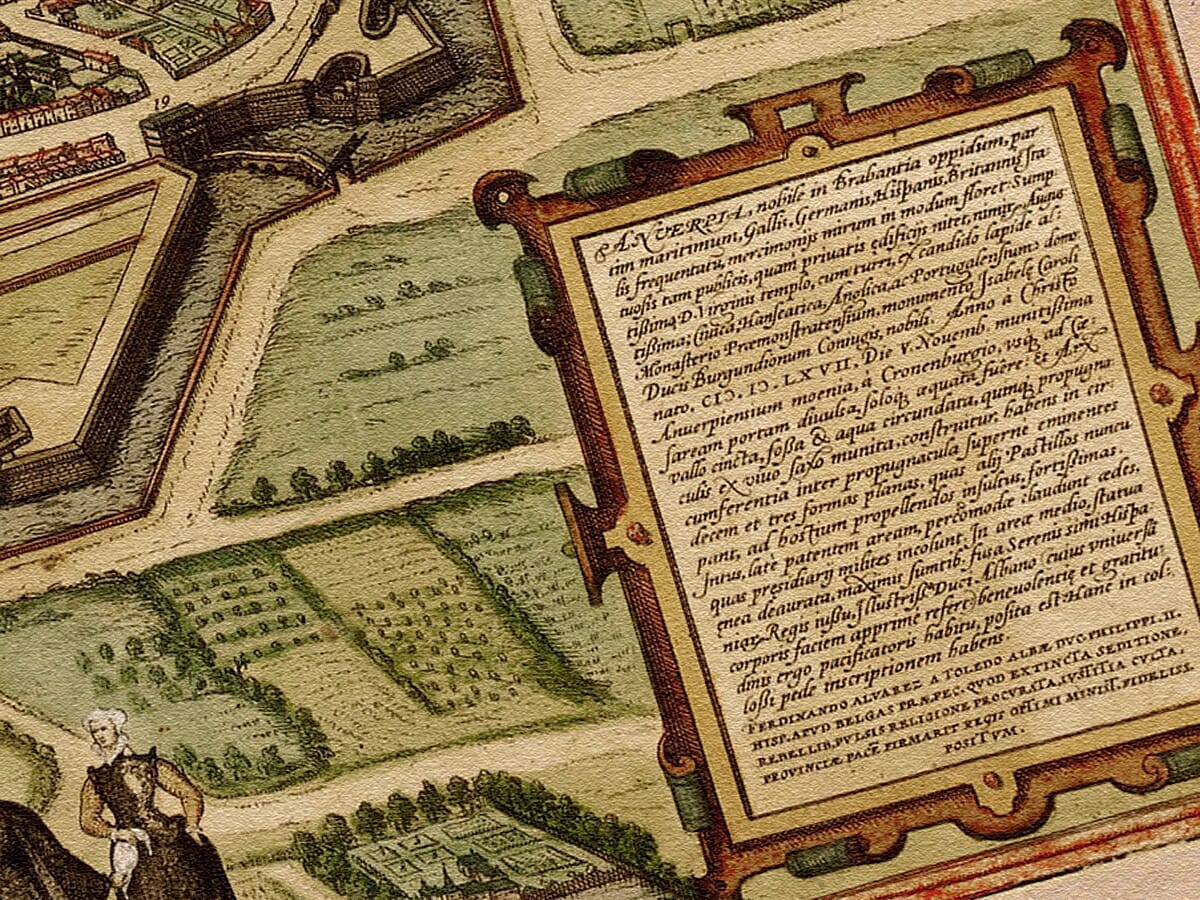 19
ANVERPIA, nobile in Brabantia oppidum, par
tim maritimum, Gallis, Germanis, Hispanis, Britannis, Ita
lis frequentatũ, mercimonijs mirum in modum floret: Sump
tuosis tam publicis, quam priuatis ędificijs nitet, nimir. Augus
tissima D. Virginis templo, cum turri, ex candido lapide al:
tissima; Ciuica, Hanseatica, Anglica, ac Portugalensium domo
Monasterio Præmonstratensium, monumento Isabelę Caroli
Ducis Burgundionum Coniugis, nobili. Anno à Christo
nato. CIↃ. IↃ. LXVII. Die V. Nouemb. munitissima
Anuerpiensium moenia, à Cronenburgio, vsq; ad Cæ:
saream portam diuulsa, soloq; æquata fuere: et Arx
vallo cincta, fossa & aqua circundata, quinq; propugna
culis ex viuo saxo munita, construitur, habens in cir:
cumferentia inter propugnacula superne eminentes
decem et tres formas planas, quas alij Pastillos nuncu
pant, ad hostium propellendos insultus, fortissimas.
Intus, late patentem aream, percõmodæ claudunt ædes,
quas presidiarij milites incolunt. In areæ medio, statua
ęnea deaurata, maximis sumtib. fusa, Serenissimi Hispa:
niar. Regis iussu, Illustriss. Duci Albano (cuius vniuersã
corporis faciem apprimè refert) beneuolentię et gratitu:
dinis ergo pacificatoris habitu, posita est. Hanc in col:
lossi pede inscriptionem habens.
FERDINANDO ALVAREZ A TOLEDO ALBÆ DVC. PHILIPPI. II.
HISP. APVD BELGAS PRÆFEC. QVOD EXTINCTA SEDITIONE,
REBELLIB. PVLSIS RELIGIONE PROCVRATA, IVSTITIA CVLTA,
PROVINCIÆ PACẼ FIRMARIT REGIS OPTIMI MINIST. FIDELISS.
POSITVM.